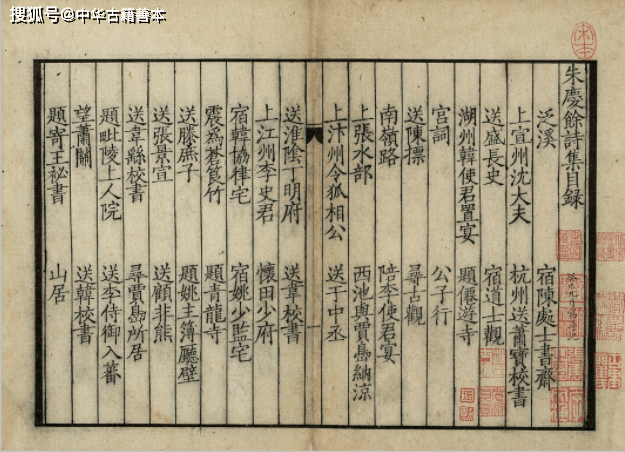 搜狐号@中华古籍善本
朱慶餘詩集目録
泛溪
宿陳處士書齋
上宣州沈大夫
杭州送蕭寶校書
送盛長史
宿道士觀
湖州韓使君置宴
題僊遊寺
宮詞
公子行
送陳摽
尋古觀
南嶺路
陪李使君宴
上張水部
西池與賈島納涼
上汴州令狐相公
送于中丞
一
送淮陰丁明府
送韋校書
上江州李史君
懷田少府
宿韓協律宅
宿姚少監宅
震爲蒼筤竹
題青龍寺
送滕庶子
題姚主簿廳壁
送張景宣
送顧非熊
送韋縣校書
尋賈島所居
題毗陵上人院
送李侍御入蕃
望蕭關
送韓校書
題寄王祕書
山居